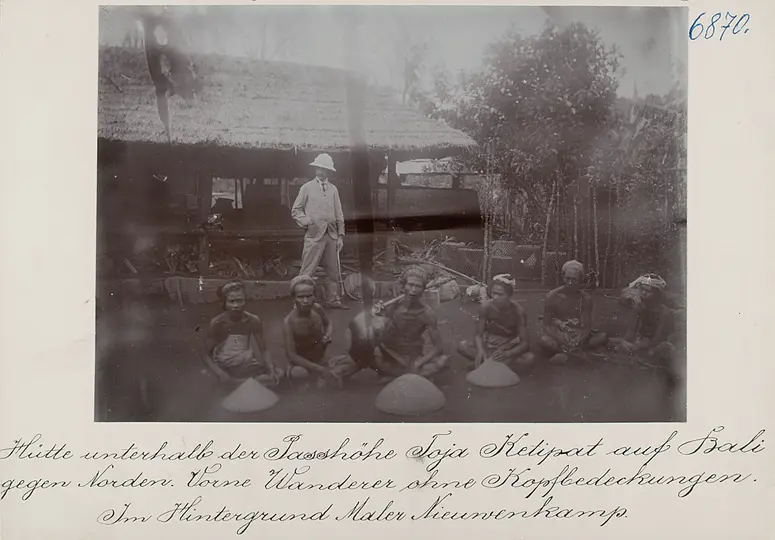 6870.
Hütte unterhalb der Passhöhe Toja Ketipat auf Bali
gegen Norden. Vorne Wanderer ohne Kopfbedeckungen.
Im Hintergrund Maler Nieuwenkamp.